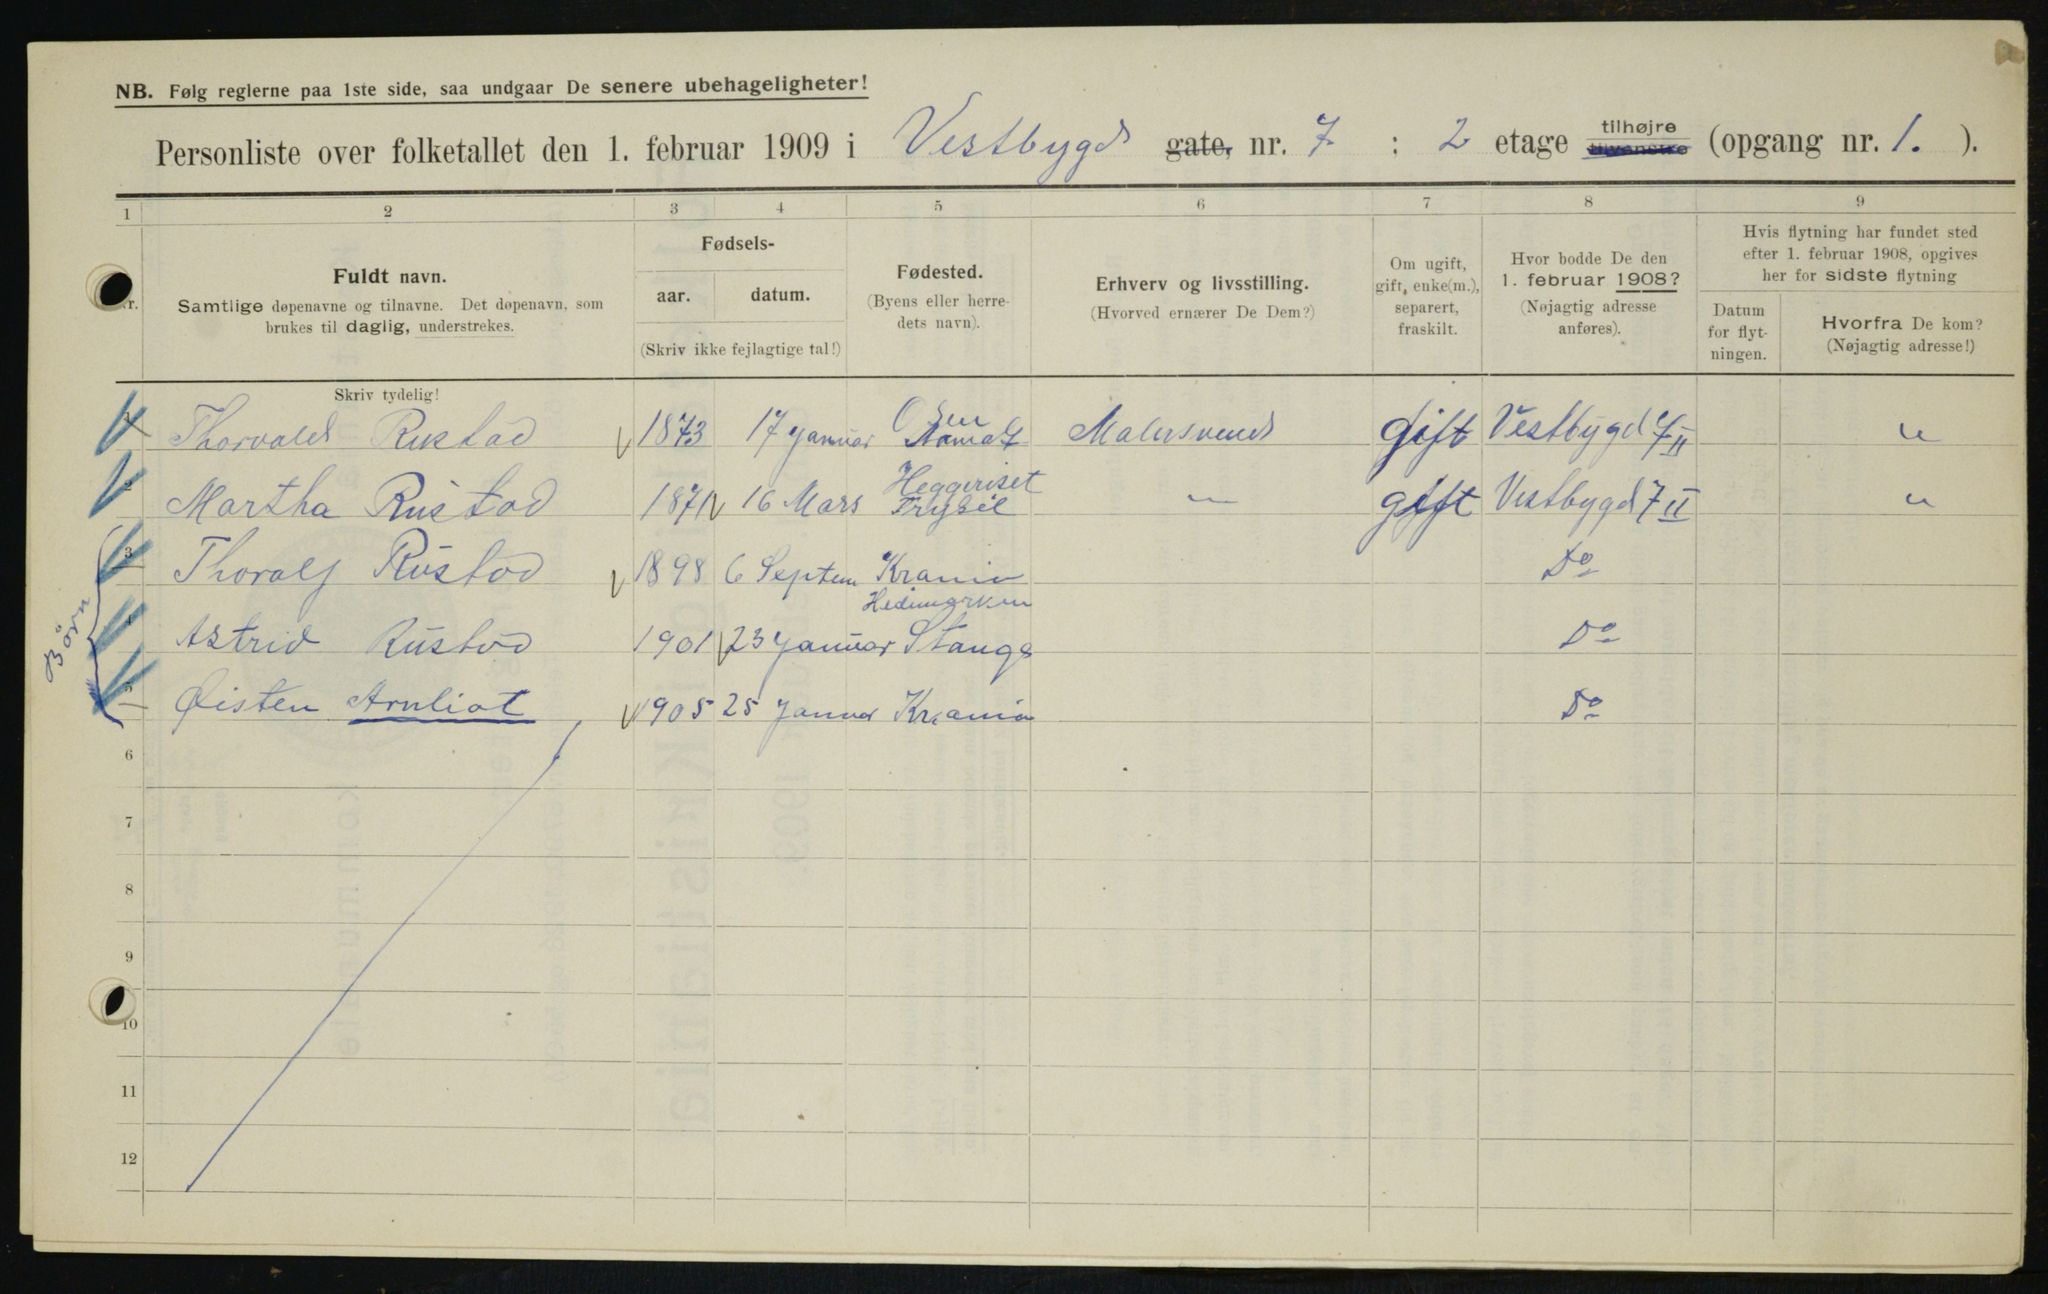 NB. Følg reglerne paa 1ste side, saa undgaar De senere ubehageligheter!
Personliste over folketallet den 1. februar 1909 i Vestbygd gate, nr. 7 : 2 etage tilhøjre tilvenstre (opgang nr. 1. ).
1 2 3 4 5 6 7 8 9
Fuldt navn.
Samtlige døpenavne og tilnavne. Det døpenavn, som
brukes til daglig, understrekes.
Skriv tydelig!
Fødsels-
aar. datum.
(Skriv ikke fejlagtige tal!)
Fødested.
(Byens eller herre-
dets navn).
Erhverv og livsstilling.
(Hvorved ernærer De Dem?)
Om ugift,
gift, enke(m.),
separert,
fraskilt.
Hvor bodde De den
1. februar 1908?
(Nøjagtig adresse
anføres).
Hvis flytning har fundet sted
efter 1. februar 1908, opgives
her for sidste flytning
Datum
for flyt-
ningen.
Hvorfra De kom?
(Nøjagtig adresse!)
Thorvald Rustad 1873 17 Januar Osen Malersvend Gift Vestbygd 7 II "
2 Martha Rustad 1871 16 Mars Heggeriset Trysil — gift Vestbygd 7 II "
Børn
3 Thoralf Rustad 1898 6 Septem Krania Do
4 Astrid Rustad 1901 23 Januar Hedemarken Stange Do
5 Øisten Arnliot 1905 25 Januar Krania Do
6
7
8
9
10
11
12